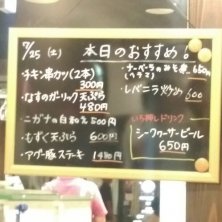 7/25 (土) 本日のおすすめ!
・チキン串カツ(2本)
300円
・なすのガーリック天ぷら
480円
・ニガナの白和え 500円
・もずく天ぷら 600円
・アグー豚ステーキ 1480円
・ナーベーラのみそ煮 650円
(ヘチマ)
・レバニラ炒め 600
いち押しドリンク
シークヮーサービール
650円